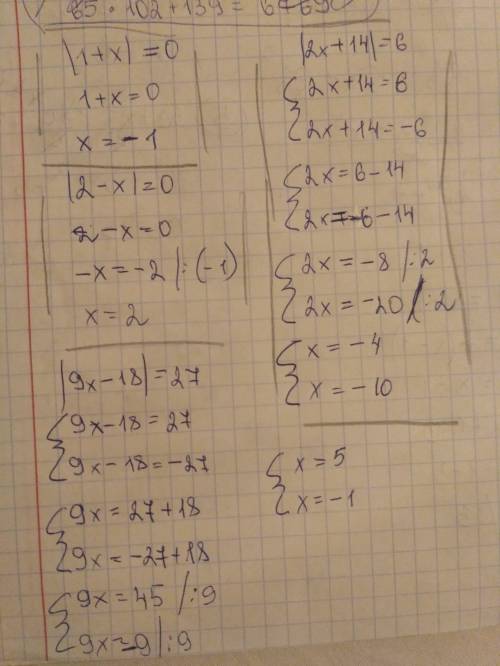 |1+x|=0
1+x=0
x=-1
|2-x|=0
2-x=0
-x=-2 |:(-1)
x=2
|9x-18|=27
{9x-18=27
9x-18=-27
{9x=27+18
9x=-27+18
{9x=45 |:9
9x=-9 |:9
|2x+14|=6
{2x+14=6
2x+14=-6
{2x=6-14
2x=-6-14
{2x=-8 |:2
2x=-20 |:2
{x=-4
x=-10
{x=5
x=-1